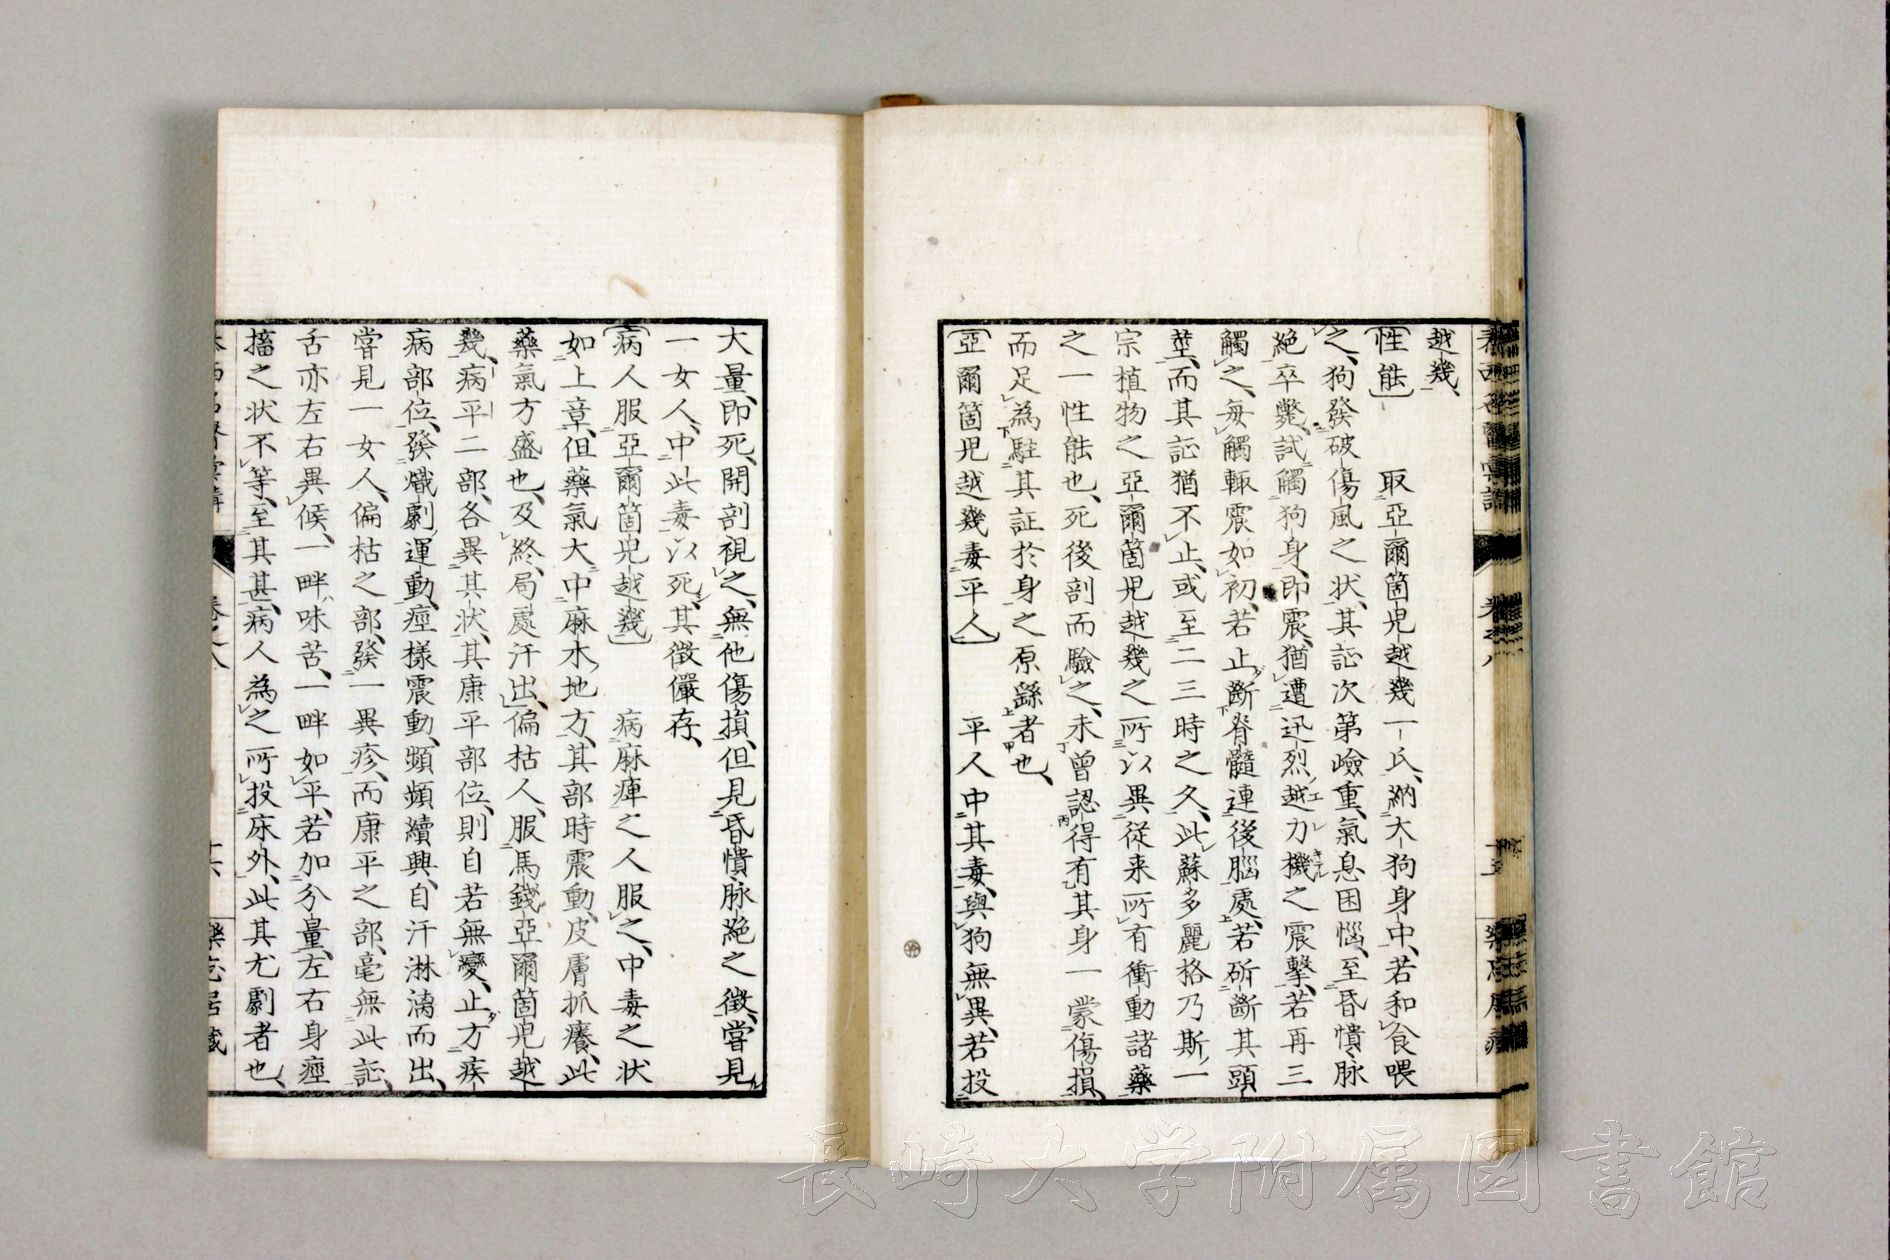 越幾、
〔性能〕　取亞爾箇兒越幾一氏、納大狗身中、若和食喂
之、狗發破傷風之状、其証次第嶮重、氣息困惱、至昏憒脉
絶卒斃、試觸狗身、即震、猶遭迅烈越力機之震擊、若再三
觸之、毎觸輙震如初、若止斷脊髓連後腦處、若斫斷其頭
莖、而其証猶不止、或至二三時之久、此蘇多麗格乃斯一
宗植物之亞爾箇兒越幾之所以異從来所有衝動諸藥
之一性能也、死後剖而驗之、未曾認得有其身一蒙傷損、
而足為駐其証於身之原繇者也、
〔亞爾箇兒越幾毒平人〕　平人中其毒、與狗無異、若投
大量、即死、開剖視之、無他傷損、但見昏憒脉絶之徴、嘗見
一女人、中此毒以死、其徴儼存、
〔病人服亞爾箇兒越幾〕　病麻痺之人服之、中毒之状
如上章、但藥氣大中麻木地方、其部時震動、皮膚抓癢、此
藥氣方盛也、及終、局處汗出、偏枯人、服馬錢亞爾箇兒越
幾、病平二部、各異其状、其康平部位、則自若無變、止方疾
病部位、發熾劇運動、痙樣震動、頻頻續興、自汗淋漓而出、
嘗見一女人、偏枯之部、發一異疹、而康平之部、毫無此証、
舌亦左右異候、一畔味苦、一畔如平、若加分量、左右身痙
搐之状不等、至其甚、病人為之所投床外、此其尤劇者也、
卷之八
十六
長崎大学附属図書館